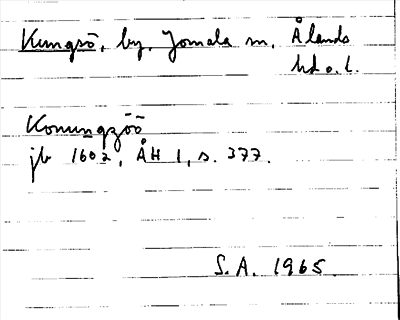 Kungsö, by, Jomala sn, Ålands
hd o. l.
Konungzöö
jb 1602, ÅH 1, s. 377.
S.A. 1965.